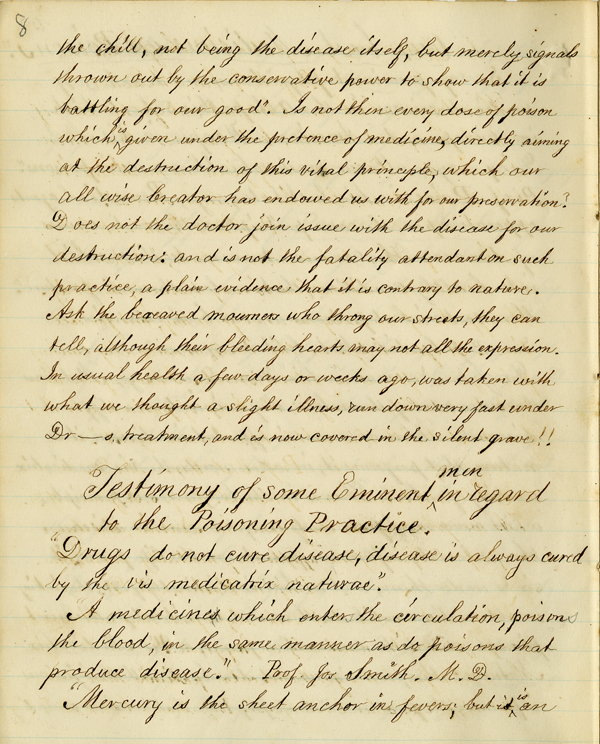 8
the chill, not being the disease itself, but merely signals
thrown out by the conservative power to show that it is
battling for our good". Is not then every dose of poison
which is given under the pretence of medicine, directly aiming
at the destruction of this vital principle, which our
all wise Creator has endowed us with for our preservation?
Does not the doctor join issue with the disease for our
destruction? and is not the fatality attendant on such
practice, a plain evidence that it is contrary to nature.
Ask the bereaved mourners who throng our streets, they can
tell, although their bleeding hearts may not all the expression.
In usual health a few days or weeks ago, was taken with
what we thought a slight illness, run down very fast under
Dr — s, treatment, and is now covered in the silent grave!!
Testimony of some Eminent men in regard
to the Poisoning Practice.
"Drugs do not cure disease, disease is always cured
by the vis medicatrix naturae".
A medicines which enter the circulation, poisons
the blood, in the same manner as do poisons that
produce disease." Prof Jos Smith. M. D.
"Mercury is the sheet anchor in fevers; but it is an